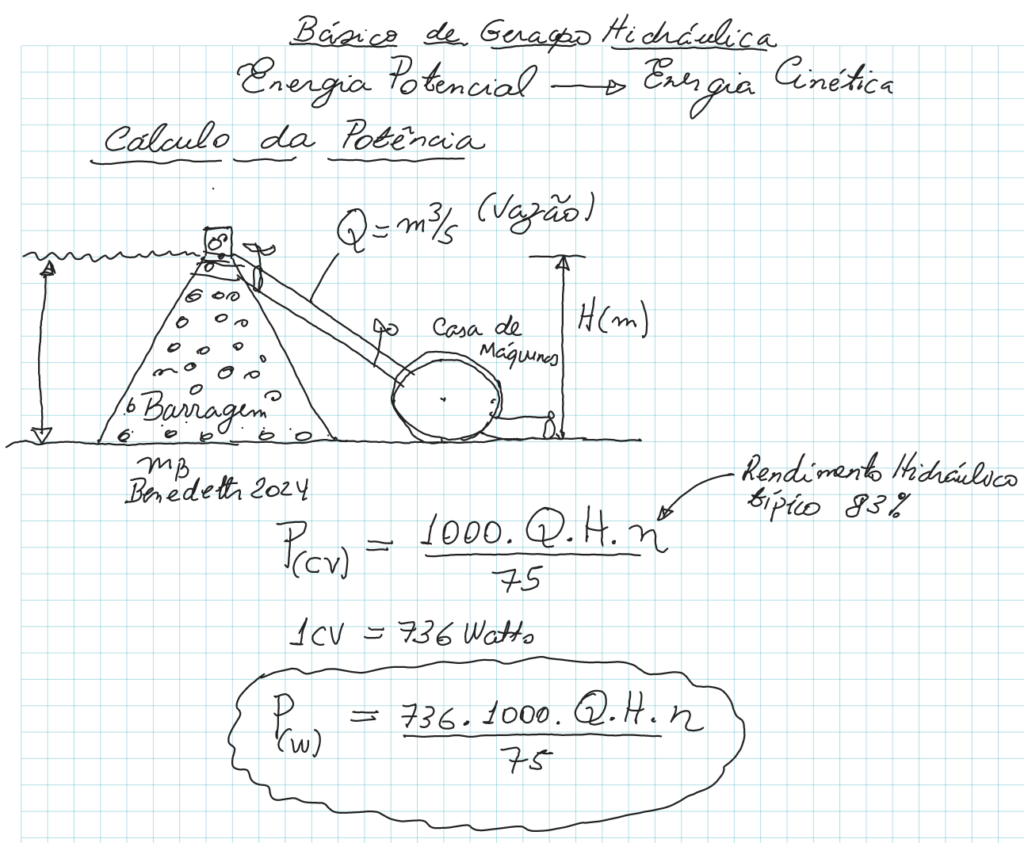 Básico de Geração Hidráulica
Energia Potencial → Energia Cinética
Cálculo da Potência
Q = m³/s (Vazão)
H(m)
Casa de
Máquinas
Barragem
MB
Benedetti 2024
Rendimento Hidráulico
típico 83%
P(CV) = 1000. Q.H.n
75
1CV = 736 Watts
P(W) = 736.1000. Q.H.n
75